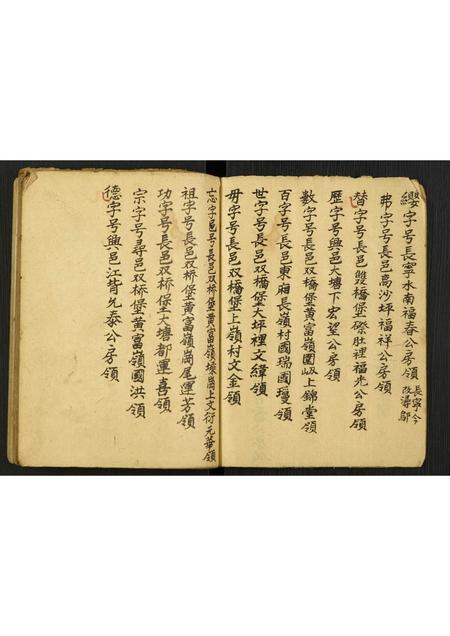 纓字号長寧水南福春公房領 長寧今改潯鄔
弗字号長邑高沙坪福祥公房領
替字号長邑雙橋堡磜肚裡福光公房領
歷字号興邑大塘下宏望公房領
數字号長邑双橋堡黄富嶺圍岋上錦堂領
百字号長邑東廂長嶺村國瑞國璦領
世字号長邑双橋堡大坪裡文緯領
毋字号長邑双橋堡上嶺村文金領
忘字号長邑双橋堡黄富嶺崗上文衍元華領
祖字号長邑双桥堡黄富嶺崗尾運芳領
功字号長邑双桥堡大塘都運喜領
宗字号尋邑双桥堡黄富嶺國洪領
德字号興邑江背允泰公房領